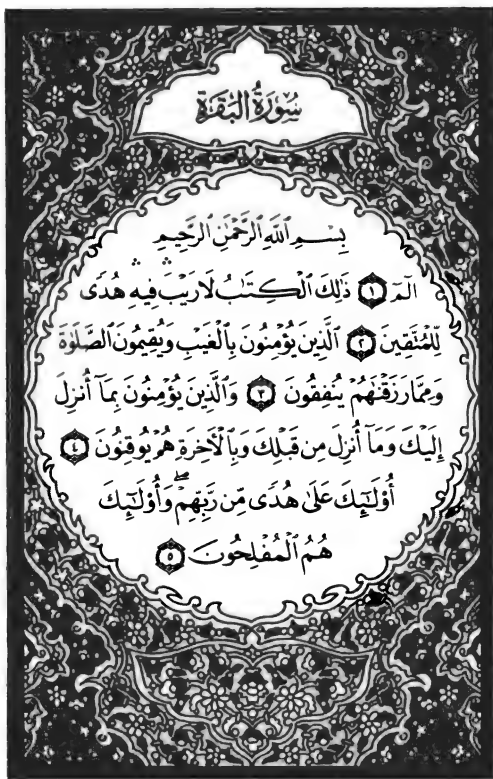 سُورَةُ الْبَقَرَةِ
بِسْمِ اللَّهِ الرَّحْمَٰنِ الرَّحِيمِ
الٓمٓ ۝١ ذَٰلِكَ ٱلْكِتَٰبُ لَا رَيْبَ ۛ فِيهِ ۛ هُدًى
لِّلْمُتَّقِينَ ۝٢ ٱلَّذِينَ يُؤْمِنُونَ بِٱلْغَيْبِ وَيُقِيمُونَ ٱلصَّلَوٰةَ
وَمِمَّا رَزَقْنَٰهُمْ يُنفِقُونَ ۝٣ وَٱلَّذِينَ يُؤْمِنُونَ بِمَآ أُنزِلَ
إِلَيْكَ وَمَآ أُنزِلَ مِن قَبْلِكَ وَبِٱلْءَاخِرَةِ هُمْ يُوقِنُونَ ۝٤
أُو۟لَٰٓئِكَ عَلَىٰ هُدًى مِّن رَّبِّهِمْ ۖ وَأُو۟لَٰٓئِكَ
هُمُ ٱلْمُفْلِحُونَ ۝٥